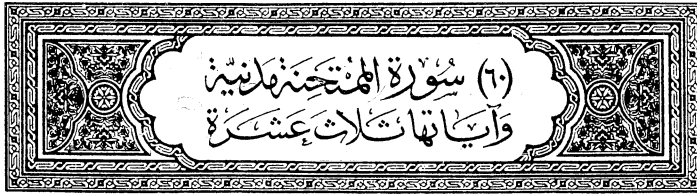 (٦٠) سُورَة الممُتَحِنَة مَدَنيَّة
وَآيَاتهَا ثَلَاثَ عَشَرَة